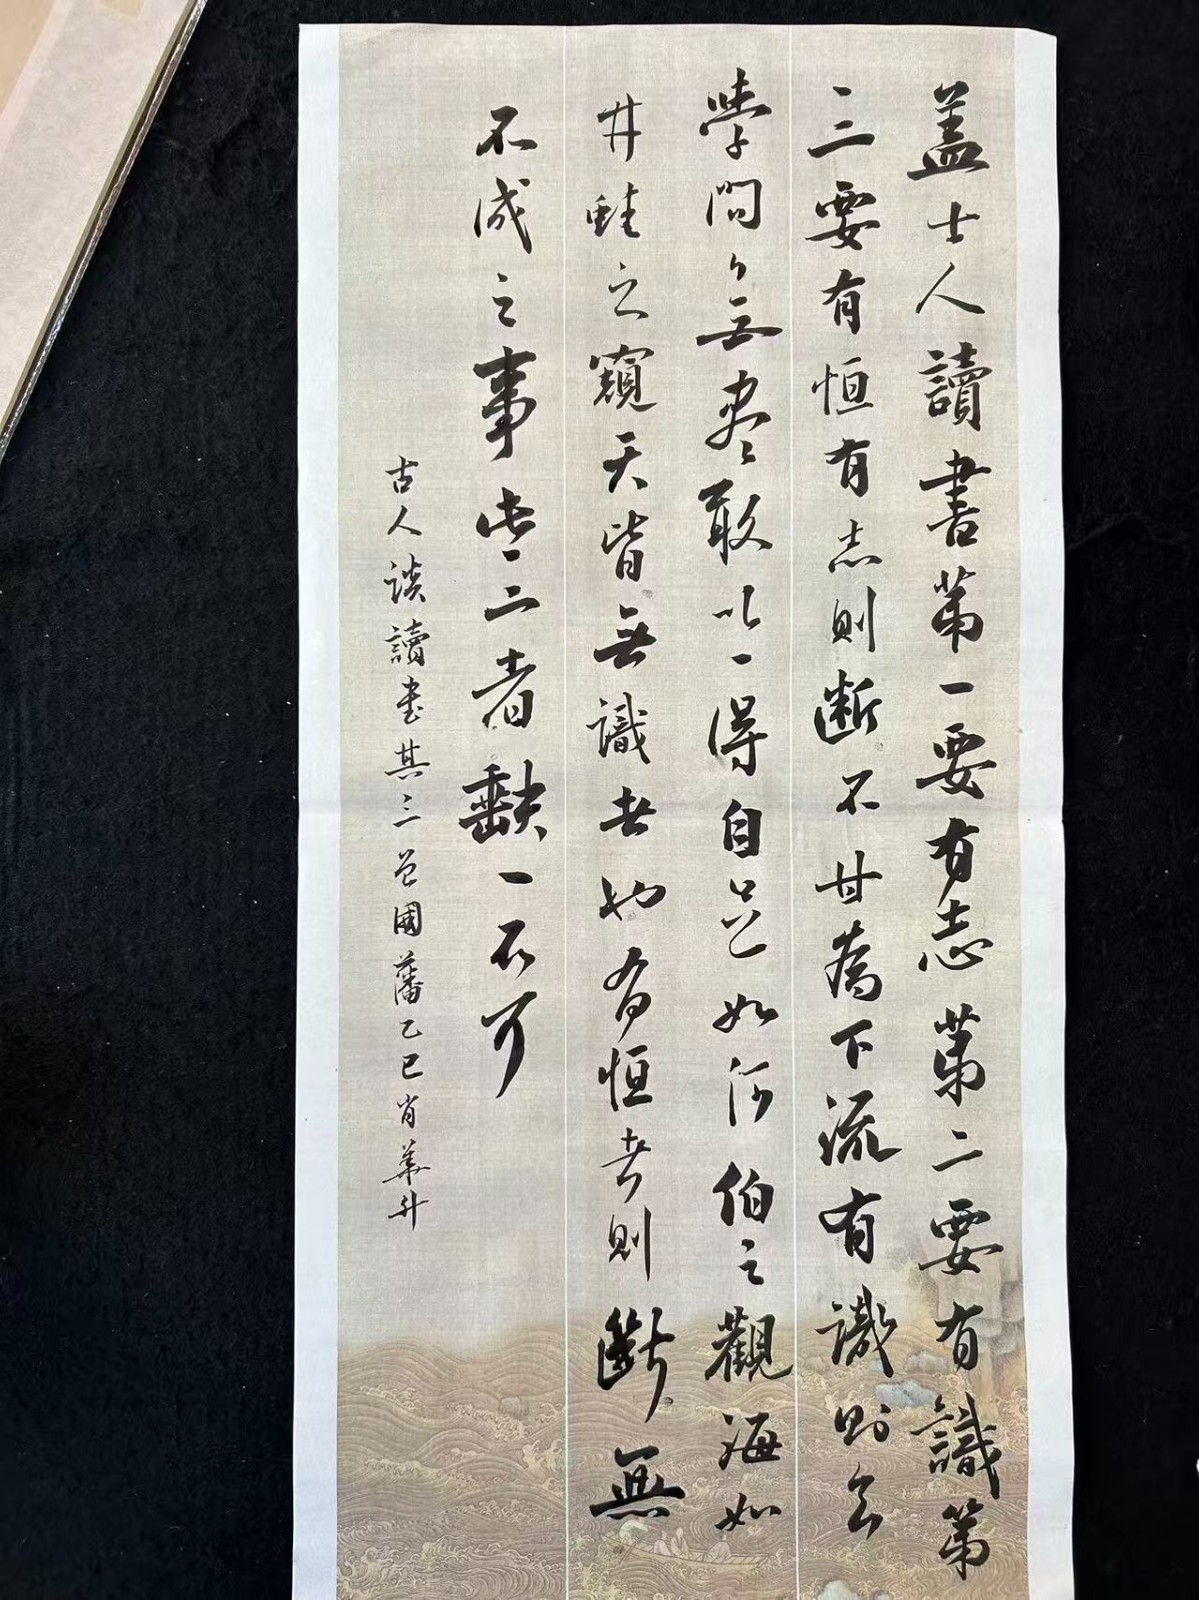 盖士人讀書第一要有志第二要有識第
三要有恒有志則断不甘為下流有識則知
學問無盡敢以一得自足如河伯之觀海如
井蛙之窺天皆無識者也有恒者則斷無
不成之事此三者缺一不可
古人談讀書其三曾國藩乙巳肖華升